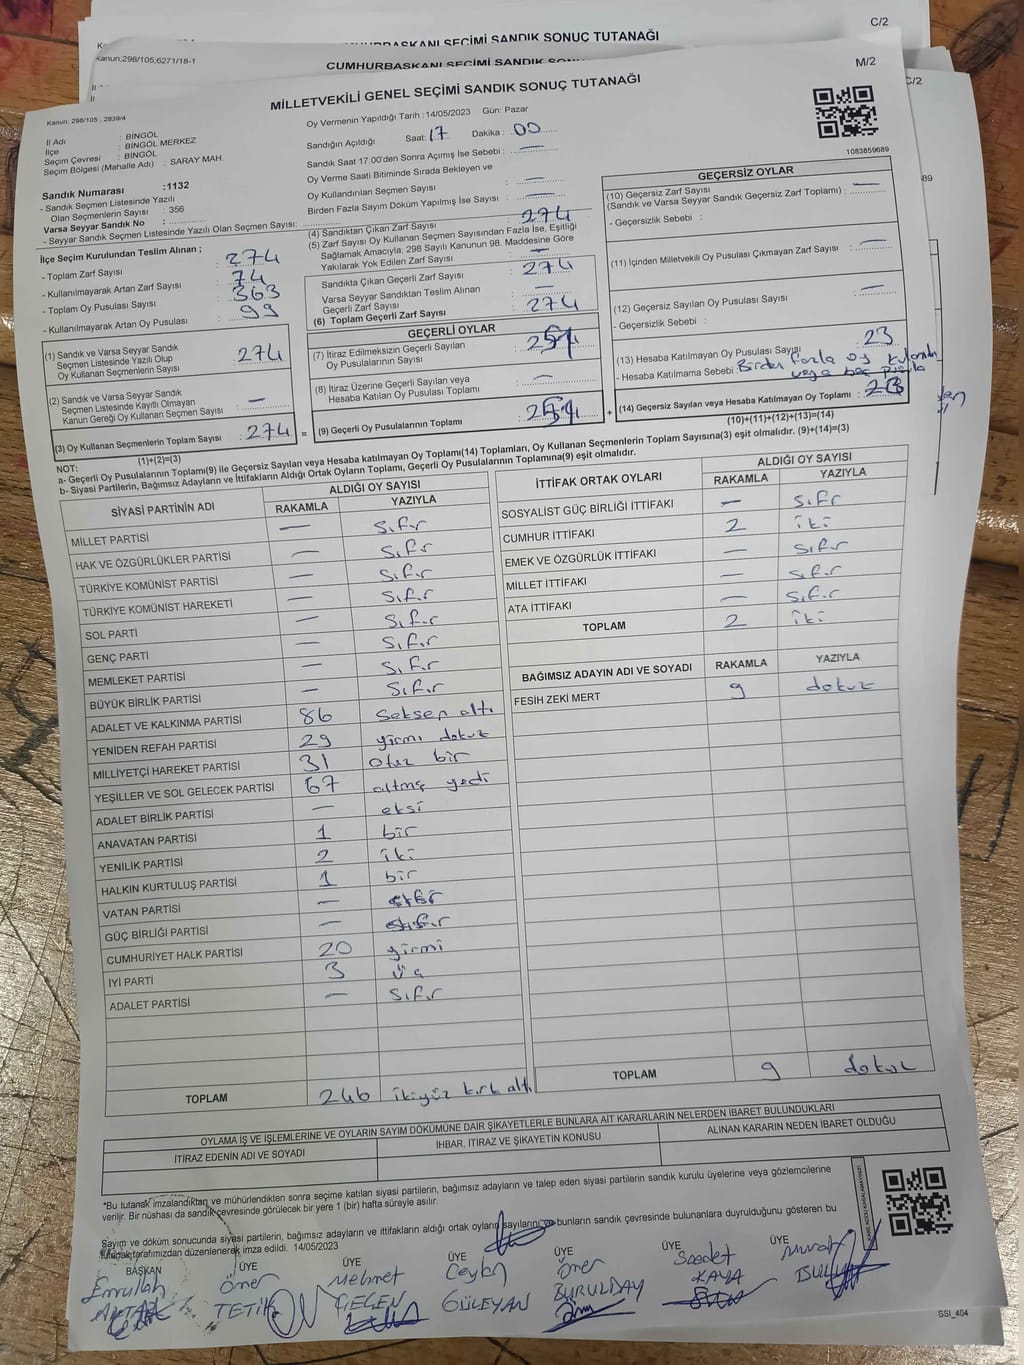 C/2
CUMHURBAŞKANI SEÇİMİ SANDIK SONUÇ TUTANAĞI
Kanun: 298/105,6271/18-1
CUMHURBAŞKANI SEÇİMİ SANDIK
M/2
C/2
MİLLETVEKİLİ GENEL SEÇİMİ SANDIK SONUÇ TUTANAĞI
Kanun: 298/105 , 2839/4
İl Adı : BİNGÖL
İlçe : BİNGÖL MERKEZ
Seçim Çevresi : BİNGÖL
Seçim Bölgesi (Mahalle Adı) : SARAY MAH.
Sandık Numarası :1132
- Sandık Seçmen Listesinde Yazılı
Olan Seçmenlerin Sayısı : 356
Varsa Seyyar Sandık No :
- Seyyar Sandık Seçmen Listesinde Yazılı Olan Seçmen Sayısı:
Oy Vermenin Yapıldığı Tarih :14/05/2023 Gün: Pazar
Sandığın Açıldığı Saat: 17 Dakika : 00
Sandık Saat 17:00'den Sonra Açımış İse Sebebi : —
Oy Verme Saati Bitiminde Sırada Bekleyen ve
Oy Kullandırılan Seçmen Sayısı : —
Birden Fazla Sayım Döküm Yapılmış İse Sayısı : —
1083859689
89
İlçe Seçim Kurulundan Teslim Alınan ;
- Toplam Zarf Sayısı : 274
- Kullanılmayarak Artan Zarf Sayısı : 74
- Toplam Oy Pusulası Sayısı : 363
- Kullanılmayarak Artan Oy Pusulası : 99
(1) Sandık ve Varsa Seyyar Sandık
Seçmen Listesinde Yazılı Olup
Oy Kullanan Seçmenlerin Sayısı : 274
(2) Sandık ve Varsa Seyyar Sandık
Seçmen Listesinde Kayıtlı Olmayan
Kanun Gereği Oy Kullanan Seçmen Sayısı : —
(3) Oy Kullanan Seçmenlerin Toplam Sayısı : 274
(1)+(2)=(3)
(4) Sandıktan Çıkan Zarf Sayısı : 274
(5) Zarf Sayısı Oy Kullanan Seçmen Sayısından Fazla İse, Eşitliği
Sağlamak Amacıyla; 298 Sayılı Kanunun 98. Maddesine Göre
Yakılarak Yok Edilen Zarf Sayısı : —
Sandıkta Çıkan Geçerli Zarf Sayısı : 274
Varsa Seyyar Sandıktan Teslim Alınan
Geçerli Zarf Sayısı : —
(6) Toplam Geçerli Zarf Sayısı : 274
GEÇERLİ OYLAR
(7) İtiraz Edilmeksizin Geçerli Sayılan
Oy Pusulalarının Sayısı :
(8) İtiraz Üzerine Geçerli Sayılan veya
Hesaba Katılan Oy Pusulası Toplamı : —
(9) Geçerli Oy Pusulalarının Toplamı :
GEÇERSİZ OYLAR
(10) Geçersiz Zarf Sayısı
(Sandık ve Varsa Seyyar Sandık Geçersiz Zarf Toplamı) : —
- Geçersizlik Sebebi :
(11) İçinden Milletvekili Oy Pusulası Çıkmayan Zarf Sayısı : —
(12) Geçersiz Sayılan Oy Pusulası Sayısı : —
- Geçersizlik Sebebi :
(13) Hesaba Katılmayan Oy Pusulası Sayısı : 23
- Hesaba Katılmama Sebebi : Birden fazla oy
veya boş pusula
(14) Geçersiz Sayılan veya Hesaba Katılmayan Oy Toplamı :
(10)+(11)+(12)+(13)=(14)
NOT:
a- Geçerli Oy Pusulalarının Toplamı(9) ile Geçersiz Sayılan veya Hesaba katılmayan Oy Toplamı(14) Toplamları, Oy Kullanan Seçmenlerin Toplam Sayısına(3) eşit olmalıdır. (9)+(14)=(3)
b- Siyasi Partilerin, Bağımsız Adayların ve İttifakların Aldığı Ortak Oyların Toplamı, Geçerli Oy Pusulalarının Toplamına(9) eşit olmalıdır.
SİYASİ PARTİNİN ADI ALDIĞI OY SAYISI
RAKAMLA YAZIYLA
MİLLET PARTİSİ — sıfır
HAK VE ÖZGÜRLÜKLER PARTİSİ — sıfır
TÜRKİYE KOMÜNİST PARTİSİ — sıfır
TÜRKİYE KOMÜNİST HAREKETİ — sıfır
SOL PARTİ — sıfır
GENÇ PARTİ — sıfır
MEMLEKET PARTİSİ — sıfır
BÜYÜK BİRLİK PARTİSİ — sıfır
ADALET VE KALKINMA PARTİSİ 86 seksen altı
YENİDEN REFAH PARTİSİ 29 yirmi dokuz
MİLLİYETÇİ HAREKET PARTİSİ 31 otuz bir
YEŞİLLER VE SOL GELECEK PARTİSİ 67 altmş yedi
ADALET BİRLİK PARTİSİ — eksi
ANAVATAN PARTİSİ 1 bir
YENİLİK PARTİSİ 2 iki
HALKIN KURTULUŞ PARTİSİ 1 bir
VATAN PARTİSİ —
GÜÇ BİRLİĞİ PARTİSİ — sıfır
CUMHURİYET HALK PARTİSİ 20 yirmi
İYİ PARTİ 3 üç
ADALET PARTİSİ — sıfır
TOPLAM 246 ikiyüz kırk altı
İTTİFAK ORTAK OYLARI ALDIĞI OY SAYISI
RAKAMLA YAZIYLA
SOSYALİST GÜÇ BİRLİĞİ İTTİFAKI — sıfır
CUMHUR İTTİFAKI 2 iki
EMEK VE ÖZGÜRLÜK İTTİFAKI — sıfır
MİLLET İTTİFAKI — sıfır
ATA İTTİFAKI — sıfır
TOPLAM 2 iki
BAĞIMSIZ ADAYIN ADI VE SOYADI RAKAMLA YAZIYLA
FESİH ZEKİ MERT 9 dokuz
TOPLAM 9 dokuz
OYLAMA İŞ VE İŞLEMLERİNE VE OYLARIN SAYIM DÖKÜMÜNE DAİR ŞİKAYETLERLE BUNLARA AİT KARARLARIN NELERDEN İBARET BULUNDUKLARI
İTİRAZ EDENİN ADI VE SOYADI İHBAR, İTİRAZ VE ŞİKAYETİN KONUSU ALINAN KARARIN NEDEN İBARET OLDUĞU
*Bu tutanak imzalandıktan ve mühürlendikten sonra seçime katılan siyasi partilerin, bağımsız adayların ve talep eden siyasi partilerin sandık kurulu üyelerine veya gözlemcilerine
verilir. Bir nüshası da sandık çevresinde görülecek bir yere 1 (bir) hafta süreyle asılır.
Sayım ve döküm sonucunda siyasi partilerin, bağımsız adayların ve ittifakların aldığı ortak oyların sayılarını ve bunların sandık çevresinde bulunanlara duyrulduğunu gösteren bu
tutanak tarafımızdan düzenlenerek imza edildi. 14/05/2023
BAŞKAN ÜYE ÜYE ÜYE ÜYE ÜYE ÜYE
Emrullah Ömer Mehmet Ceylan Ömer Saadet Murat
TETİK GELEN GÜLEYAN BURULDAY KAYA BULUT
SSI_404